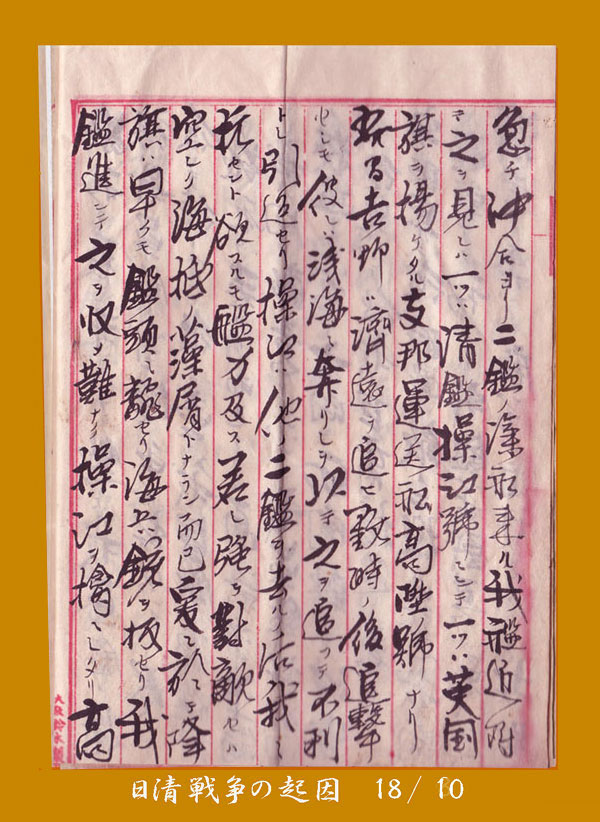 忽チ沖合ヨリ二鑑ノ来ル我艦近附
テ之ヲ見レハ一ツハ清鑑操江號ニシテ一ツハ英国
旗ヲ揚ケタル支那運送船高陞號ナリ
吉野ハ濟遠ヲ追 数時ノ後追撃
セシモ彼レ浅海ニ奔リシヲ以テ之ヲ追フテ不利
トシ引返セリ操江ハ他ノ二鑑ヲ去ルノ後我ニ
抗セント欲スルモ艦力及ス若シ強テ對敵セハ
空シク海底ノ藻屑トナラン而已爰ニ於テ降
旗ハ早クモ鑑頭ニ翻セリ海兵ハ銃ヲ セリ我
鑑進ンテ之ヲ収メ難ナク操江ヲ擒ニシタリ高
大阪鈴木製
日清戦争の起因 18/10